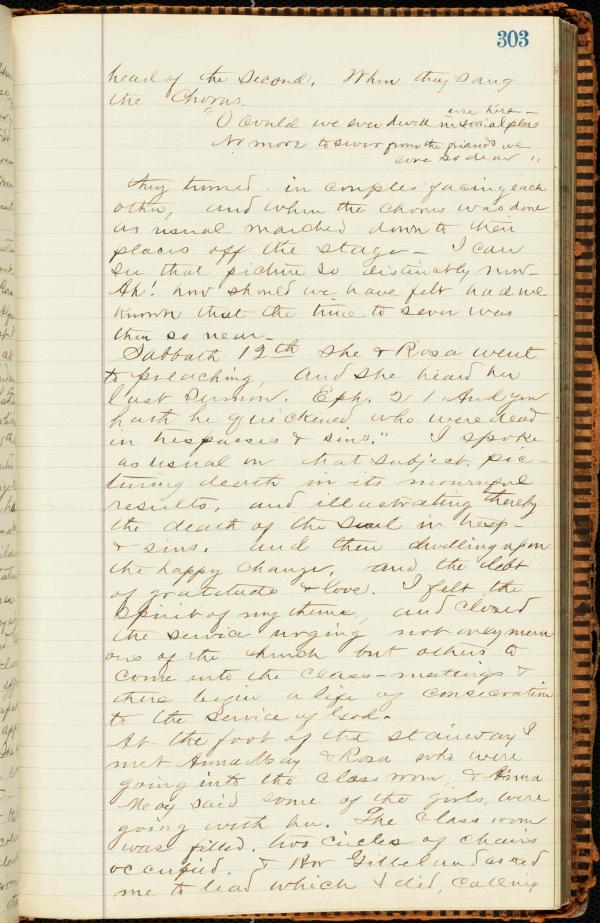 303
head of the Second. When they sang
the Chorus.
"O could we ever dwell in social
No more to sever from the friends we
love so dear"
they turned in couples facing each
other, and when the chorus was done
as usual marched down to their
places off the stage— I can
see that picture so distinctly now—
Ah! how should we have felt had we
known that the time to sever was
then so near—
Sabbath 19th She & Rosa went
to preaching, and she heard her
last Sermon. Eph. 2 1 And you
hath he quickened who were dead
in trespasses & sins." I spoke
as usual on that subject, pic-
turing death in its mournful
results, and illustrating thereby
the death of the Soul in tresp-
& sins. and then dwelling upon
the happy change, and the debt
of gratitude & love. I felt the
Spirit of my theme, and closed
the service urging not only mem
ers of the church but others to
come into the class-meetings &
there begin a life of consecration
to the service of God.
At the foot of the stairway I
met Anna May & Rosa who were
going into the Class room, & Anna
May said some of the girls, were
going with her. The Class room
was filled, two circles of chairs
occupied. & Bro asked
me to lead which I did, calling